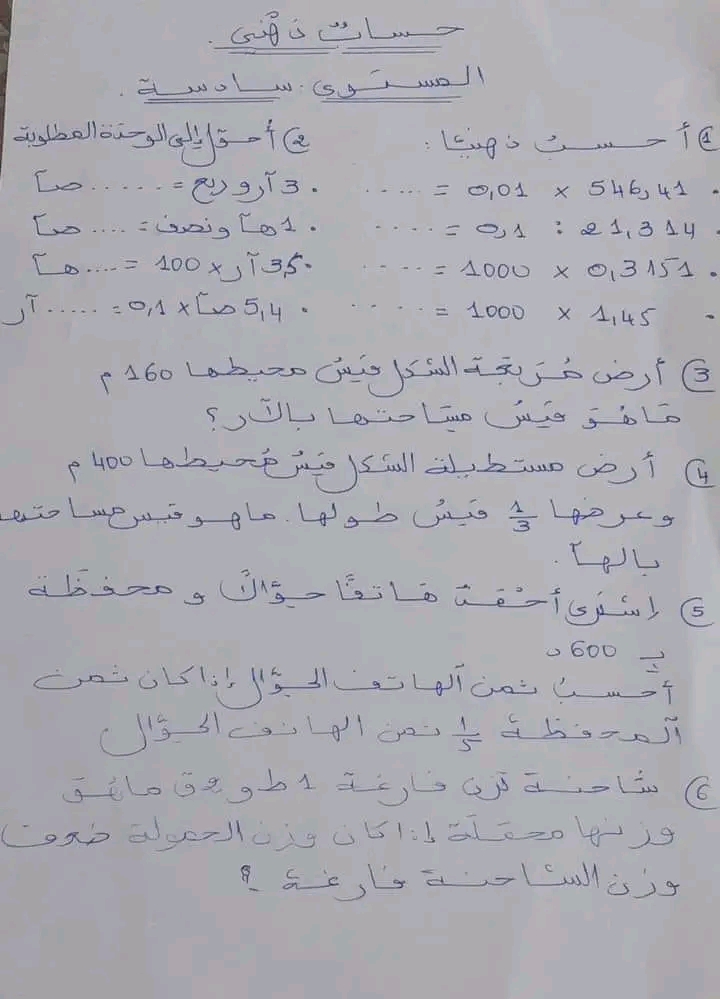 حساب ذهني.
المستوى : سادسة.
① أحسب ذهنيّا :
. 546,41 × 0,01 = .....
. 21,314 : 0,1 = ....
. 0,3151 × 1000 = ....
. 1,45 × 1000 = ....
② أحوّل إلى الوحدة المطلوبة
. 3 آر و ربع = ...... صآ
. 1 هآ ونصف = .... صآ
. 3,5 آر × 100 = .... هآ
. 5,4 صآ × 0,1 = ..... آر
③ أرض مُربّعة الشكل قيس محيطها 160 م
مَا هُوَ قيسُ مِسَاحتها بالآر؟
④ أرض مستطيلة الشكل قيسُ مُحيطها 400 م
وعرضها 1/3 قيسُ طولها. ما هو قيس مساحتها
بالهآ.
⑤ اشترى أحْمَدُ هَاتفًا جوّالاً و محفظة
بـ 600 د
أحسبُ ثمن الهاتف الجوّال إذا كان ثمن
المحفظة 1/5 ثمن الهاتف الجوّال
⑥ شاحنة تزن فارغة 1 ط و 2 ق ماهُوَ
وزنها محمّلة إذا كان وزن الحمولة ضعف
وزن الشاحنة فارغة ؟